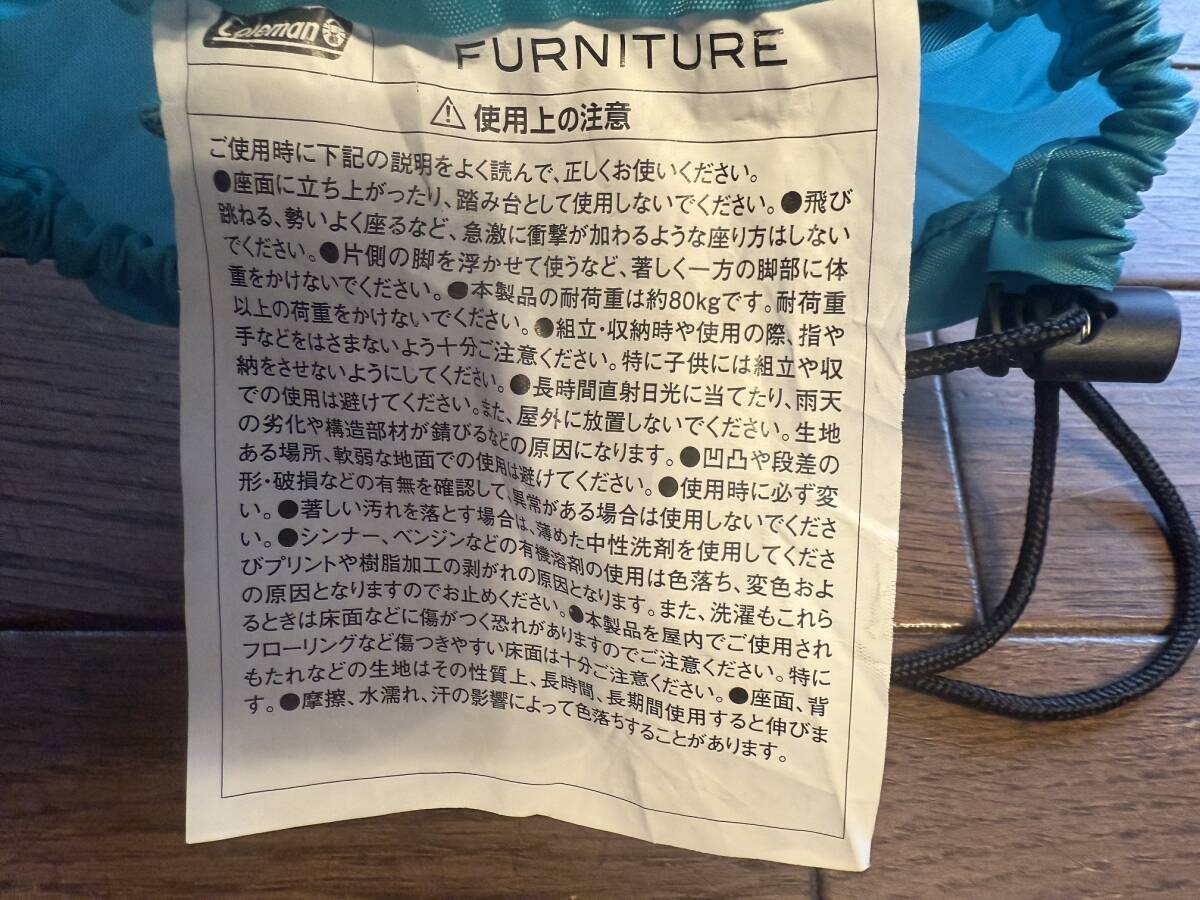 Coleman
FURNITURE
⚠ 使用上の注意
ご使用時に下記の説明をよく読んで、正しくお使いください。
●座面に立ち上がったり、踏み台として使用しないでください。●飛び
跳ねる、勢いよく座るなど、急激に衝撃が加わるような座り方はしない
でください。●片側の脚を浮かせて使うなど、著しく一方の脚部に体
重をかけないでください。●本製品の耐荷重は約80kgです。耐荷重
以上の荷重をかけないでください。●組立・収納時や使用の際、指や
手などをはさまないよう十分ご注意ください。特に子供には組立や収
納をさせないようにしてください。●長時間直射日光に当てたり、雨天
での使用は避けてください。また、屋外に放置しないでください。生地
の劣化や構造部材が錆びるなどの原因になります。●凹凸や段差の
ある場所、軟弱な地面での使用は避けてください。●使用時に必ず変
形・破損などの有無を確認して、異常がある場合は使用しないでくださ
い。●著しい汚れを落とす場合は、薄めた中性洗剤を使用してくださ
い。●シンナー、ベンジンなどの有機溶剤の使用は色落ち、変色およ
びプリントや樹脂加工の剥がれの原因となります。また、洗濯もこれら
の原因となりますのでお止めください。●本製品を屋内でご使用され
るときは床面などに傷がつく恐れがありますのでご注意ください。特に
フローリングなど傷つきやすい床面は十分ご注意ください。●座面、背
もたれなどの生地はその性質上、長時間、長期間使用すると伸びま
す。●摩擦、水濡れ、汗の影響によって色落ちすることがあります。